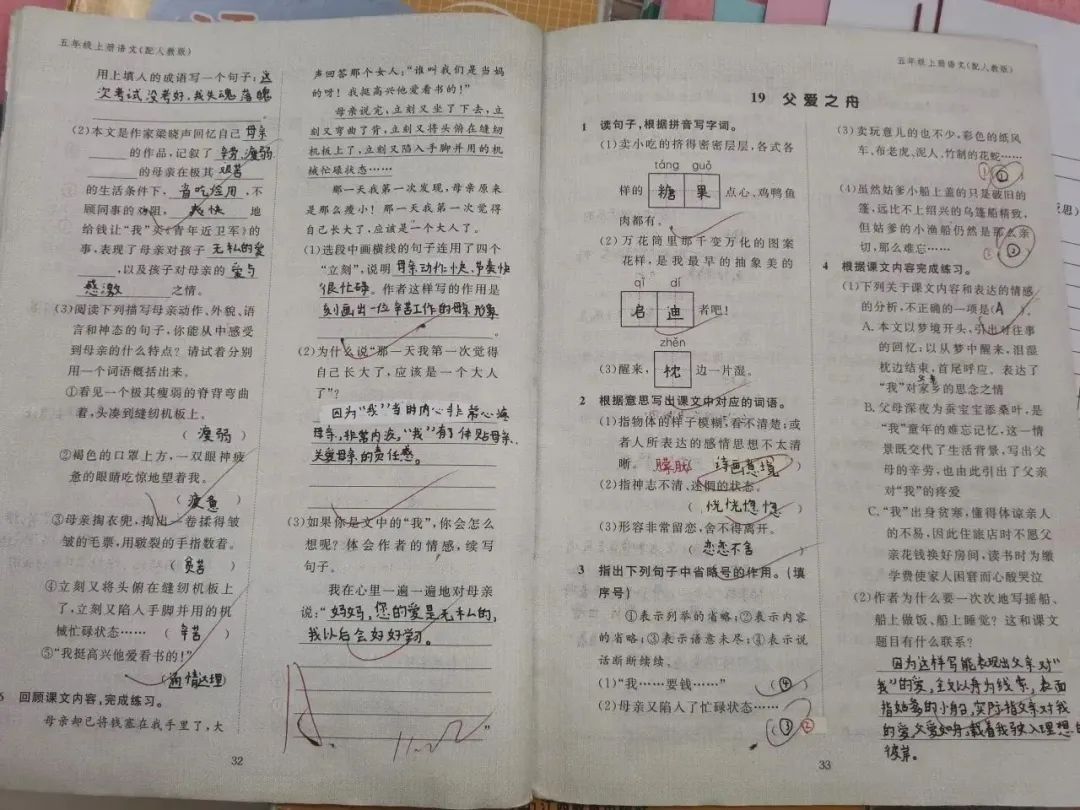 五年级上册语文(配人教版)
用上填人的成语写一个句子:这
次考试没考好,我失魂落魄
(2)本文是作家梁晓声回忆自己母亲
的作品,记叙了辛劳、瘦弱
的母亲在极其艰苦
的生活条件下,省吃俭用,不
顾同事的劝阻,爽快地
给钱让“我”买《青年近卫军》的
事,表现了母亲对孩子无私的爱
,以及孩子对母亲的爱与
感激之情。
(3)阅读下列描写母亲动作、外貌、语
言和神态的句子,你能从中感受
到母亲的什么特点?请试着分别
用一个词语概括出来。
①看见一个极其瘦弱的脊背弯曲
着,头凑到缝纫机板上。
(瘦弱)
②褐色的口罩上方,一双眼神疲
惫的眼睛吃惊地望着我。
(疲惫)
③母亲掏衣兜,掏出一卷揉得皱
皱的毛票,用皲裂的手指数着。
(贫苦)
④立刻又将头俯在缝纫机板上
了,立刻又陷入手脚并用的机
械忙碌状态……(辛苦)
⑤“我挺高兴他爱看书的!”
(通情达理)
6 回顾课文内容,完成练习。
母亲却已将钱塞在我手里了,大
32
声回答那个女人:“谁叫我们是当妈
的呀!我挺高兴他爱看书的!”
母亲说完,立刻又坐了下去,立
刻又弯曲了背,立刻又将头俯在缝纫
机板上了,立刻又陷入手脚并用的机
械忙碌状态……
那一天我第一次发现,母亲原来
是那么瘦小!那一天我第一次觉得
自己长大了,应该是一个大人了。
(1)选段中画横线的句子连用了四个
“立刻”,说明母亲动作快、节奏快
很忙碌。作者这样写的作用是
刻画出一位辛苦工作的母亲形象
(2)为什么说“那一天我第一次觉得
自己长大了,应该是一个大人
了”?
因为“我”当时内心非常心疼
母亲,非常内疚,“我”有了体贴母亲、
关爱母亲的责任感。
(3)如果你是文中的“我”,你会怎么
想呢?体会作者的情感,续写
句子。
我在心里一遍一遍地对母亲
说:“妈妈,您的爱是无私的,
我以后会好好学习。
”
五年级上册语文(配人教版)
19 父爱之舟
1 读句子,根据拼音写字词。
(1)卖小吃的挤得密密层层,各式各
táng guǒ
样的糖果点心、鸡鸭鱼
肉都有。
(2)万花筒里那千变万化的图案
花样,是我最早的抽象美的
qǐ dí
启迪者吧!
zhěn
(3)醒来,枕边一片湿。
2 根据意思写出课文中对应的词语。
(1)指物体的样子模糊,看不清楚;或
者人所表达的感情思想不太清
晰。朦胧
(2)指神志不清、迷惘的状态。
(恍恍惚惚)
(3)形容非常留恋,舍不得离开。
(恋恋不舍)
3 指出下列句子中省略号的作用。(填
序号)
①表示列举的省略;②表示内容
的省略;③表示语意未尽;④表示说
话断断续续。
(1)“我……要钱……”(④)
(2)母亲又陷人了忙碌状态……
(③ ②
33
(3)卖玩意儿的也不少,彩色的纸风
车、布老虎、泥人、竹制的花蛇……
(4)虽然姑爹小船上盖的只是破旧的
篷,远比不上绍兴的乌篷船精致,
但姑爹的小渔船仍然是那么亲
切,那么难忘……
4 根据课文内容完成练习。
(1)下列关于课文内容和表达的情感
的分析,不正确的一项是(A)。
A. 本文以梦境开头,引出对往事
的回忆;以从梦中醒来,泪湿
枕边结束,首尾呼应。表达了
“我”对家乡的思念之情
父亲
B. 父母深夜为蚕宝宝添桑叶,是
“我”童年的难忘记忆,这一情
景既交代了生活背景,写出父
母的辛劳,也由此引出了父亲
对“我”的疼爱
C. “我”出身贫寒,懂得体谅亲人
的不易,因此住旅店时不愿父
亲花钱换好房间,读书时为缴
学费使家人困窘而心酸哭泣
(2)作者为什么要一次次地写摇船、
船上做饭、船上睡觉?这和课文
题目有什么联系?
因为这样写能表现出父亲对“
我”的爱,全文以舟为线索,表面
指姑爹的小船,实际指父亲对我
的爱,父爱如舟,载着我驶入理想的
彼岸。
反思)